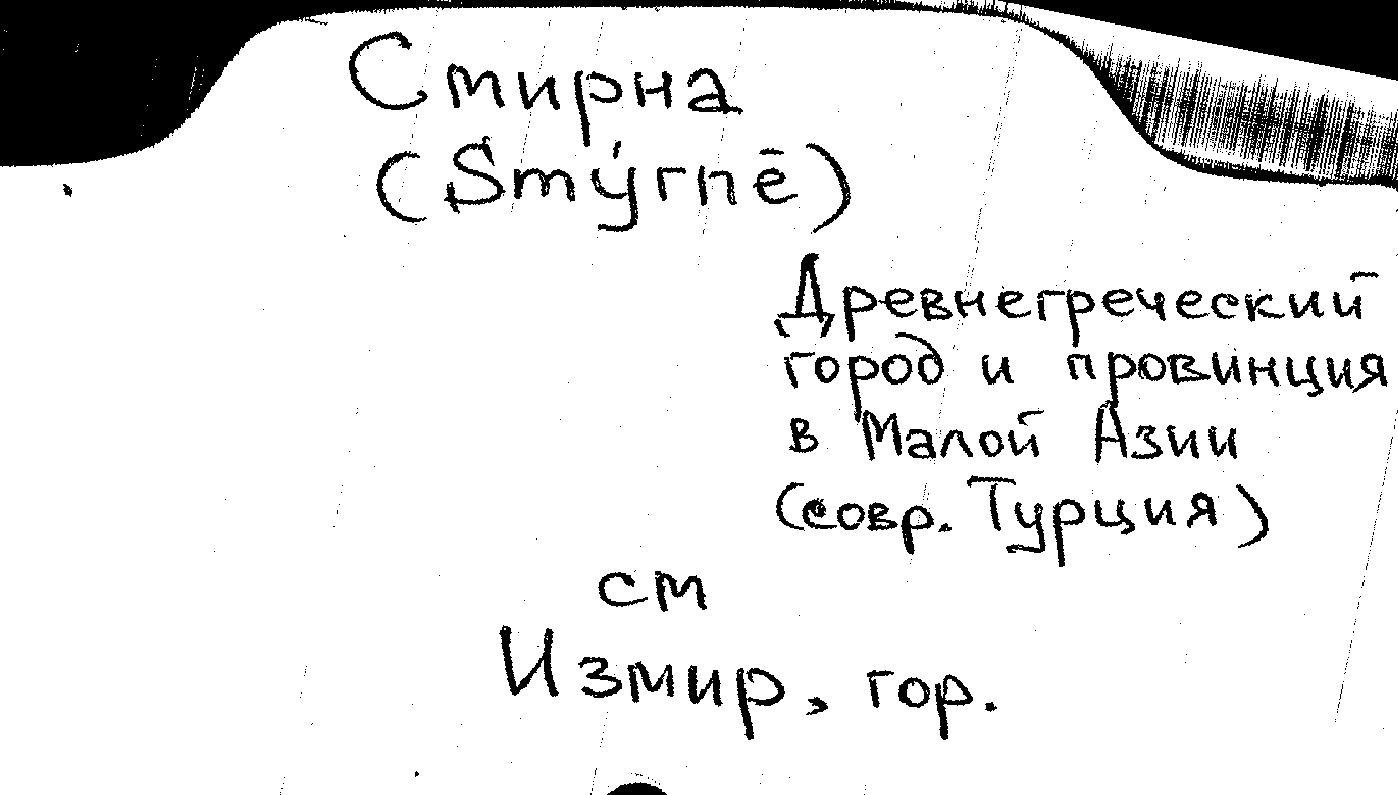 Смирна
(Smýrnē)
Древнегреческий
город и провинция
в Малой Азии
(совр. Турция)
см
Измир, гор.